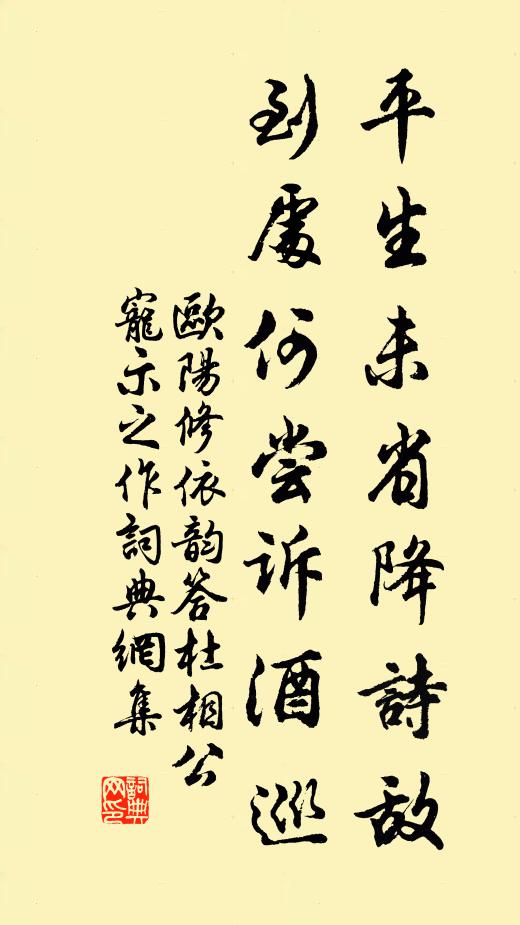 平生未省降詩敵
到處何嘗訴酒巡
歐陽修依韵答杜相公
寵示之作詞典網集
詞典网印